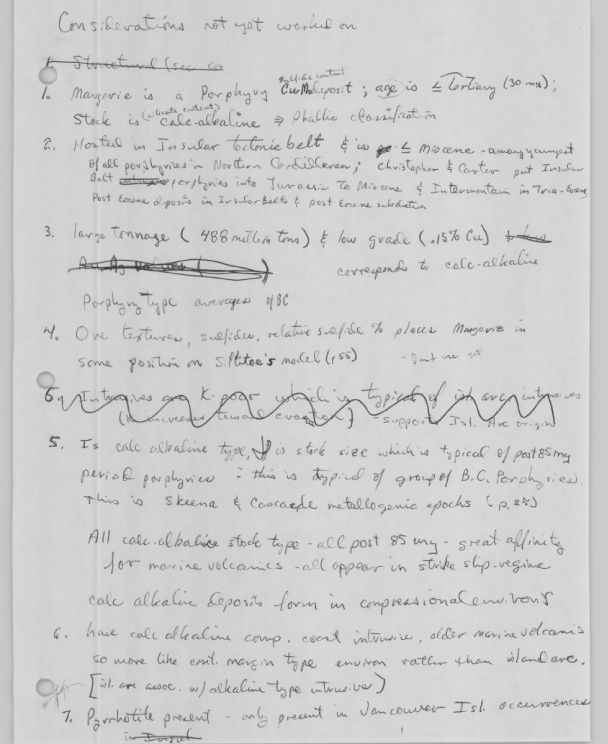 Considerations not yet worked on
1. Structural (see
1. Margerie is a Porphyry Cu-Mo deposit ; age is ≤ Tertiary (30 my) ;
Stock is calc-alkaline ⇒ Phallic classification
2. Hosted in Insular tectonic belt & is ≤ Miocene - among youngest
of all porphyries in Northern Cordilleran ; Christopher & Carter put Insular
Belt porphyries into Jurassic to Miocene & Intermontain in Tria-Eocene
Post Eocene deposits in Insular Belts & post Eocene subduction
3. large tonnage ( 488 million tons) & low grade ( .15% Cu)
Au Ag values ( ) corresponds to calc-alkaline
Porphyry type averages of BC
4. Ore textures, sulfides, relative sulfide % places Margerie in
some position on Sillitoe's model (p 55) - Don't use yet
5. Intrusives are K-poor which is typical of isl arc intrusives
(K increases toward craton) - supports Isl. Arc origin
5. Is calc alkaline type, is stock size which is typical of post 85 my
period porphyries - this is typical of group of B.C. Porphyries.
This is Skeena & Cascade metallogenic epochs ( p. )
All calc-alkaline stock type - all post 85 my - great affinity
for marine volcanics - all appear in strike slip-regime
calc alkaline deposits form in compressional environs
6. have calc alkaline comp. coast intrusive, older marine volcanics
so more like cont. margin type environ rather than island arc.
[isl. arc assoc. w/ alkaline type intrusives]
7. Pyrrhotite present - only present in Vancouver Isl. occurrences
in